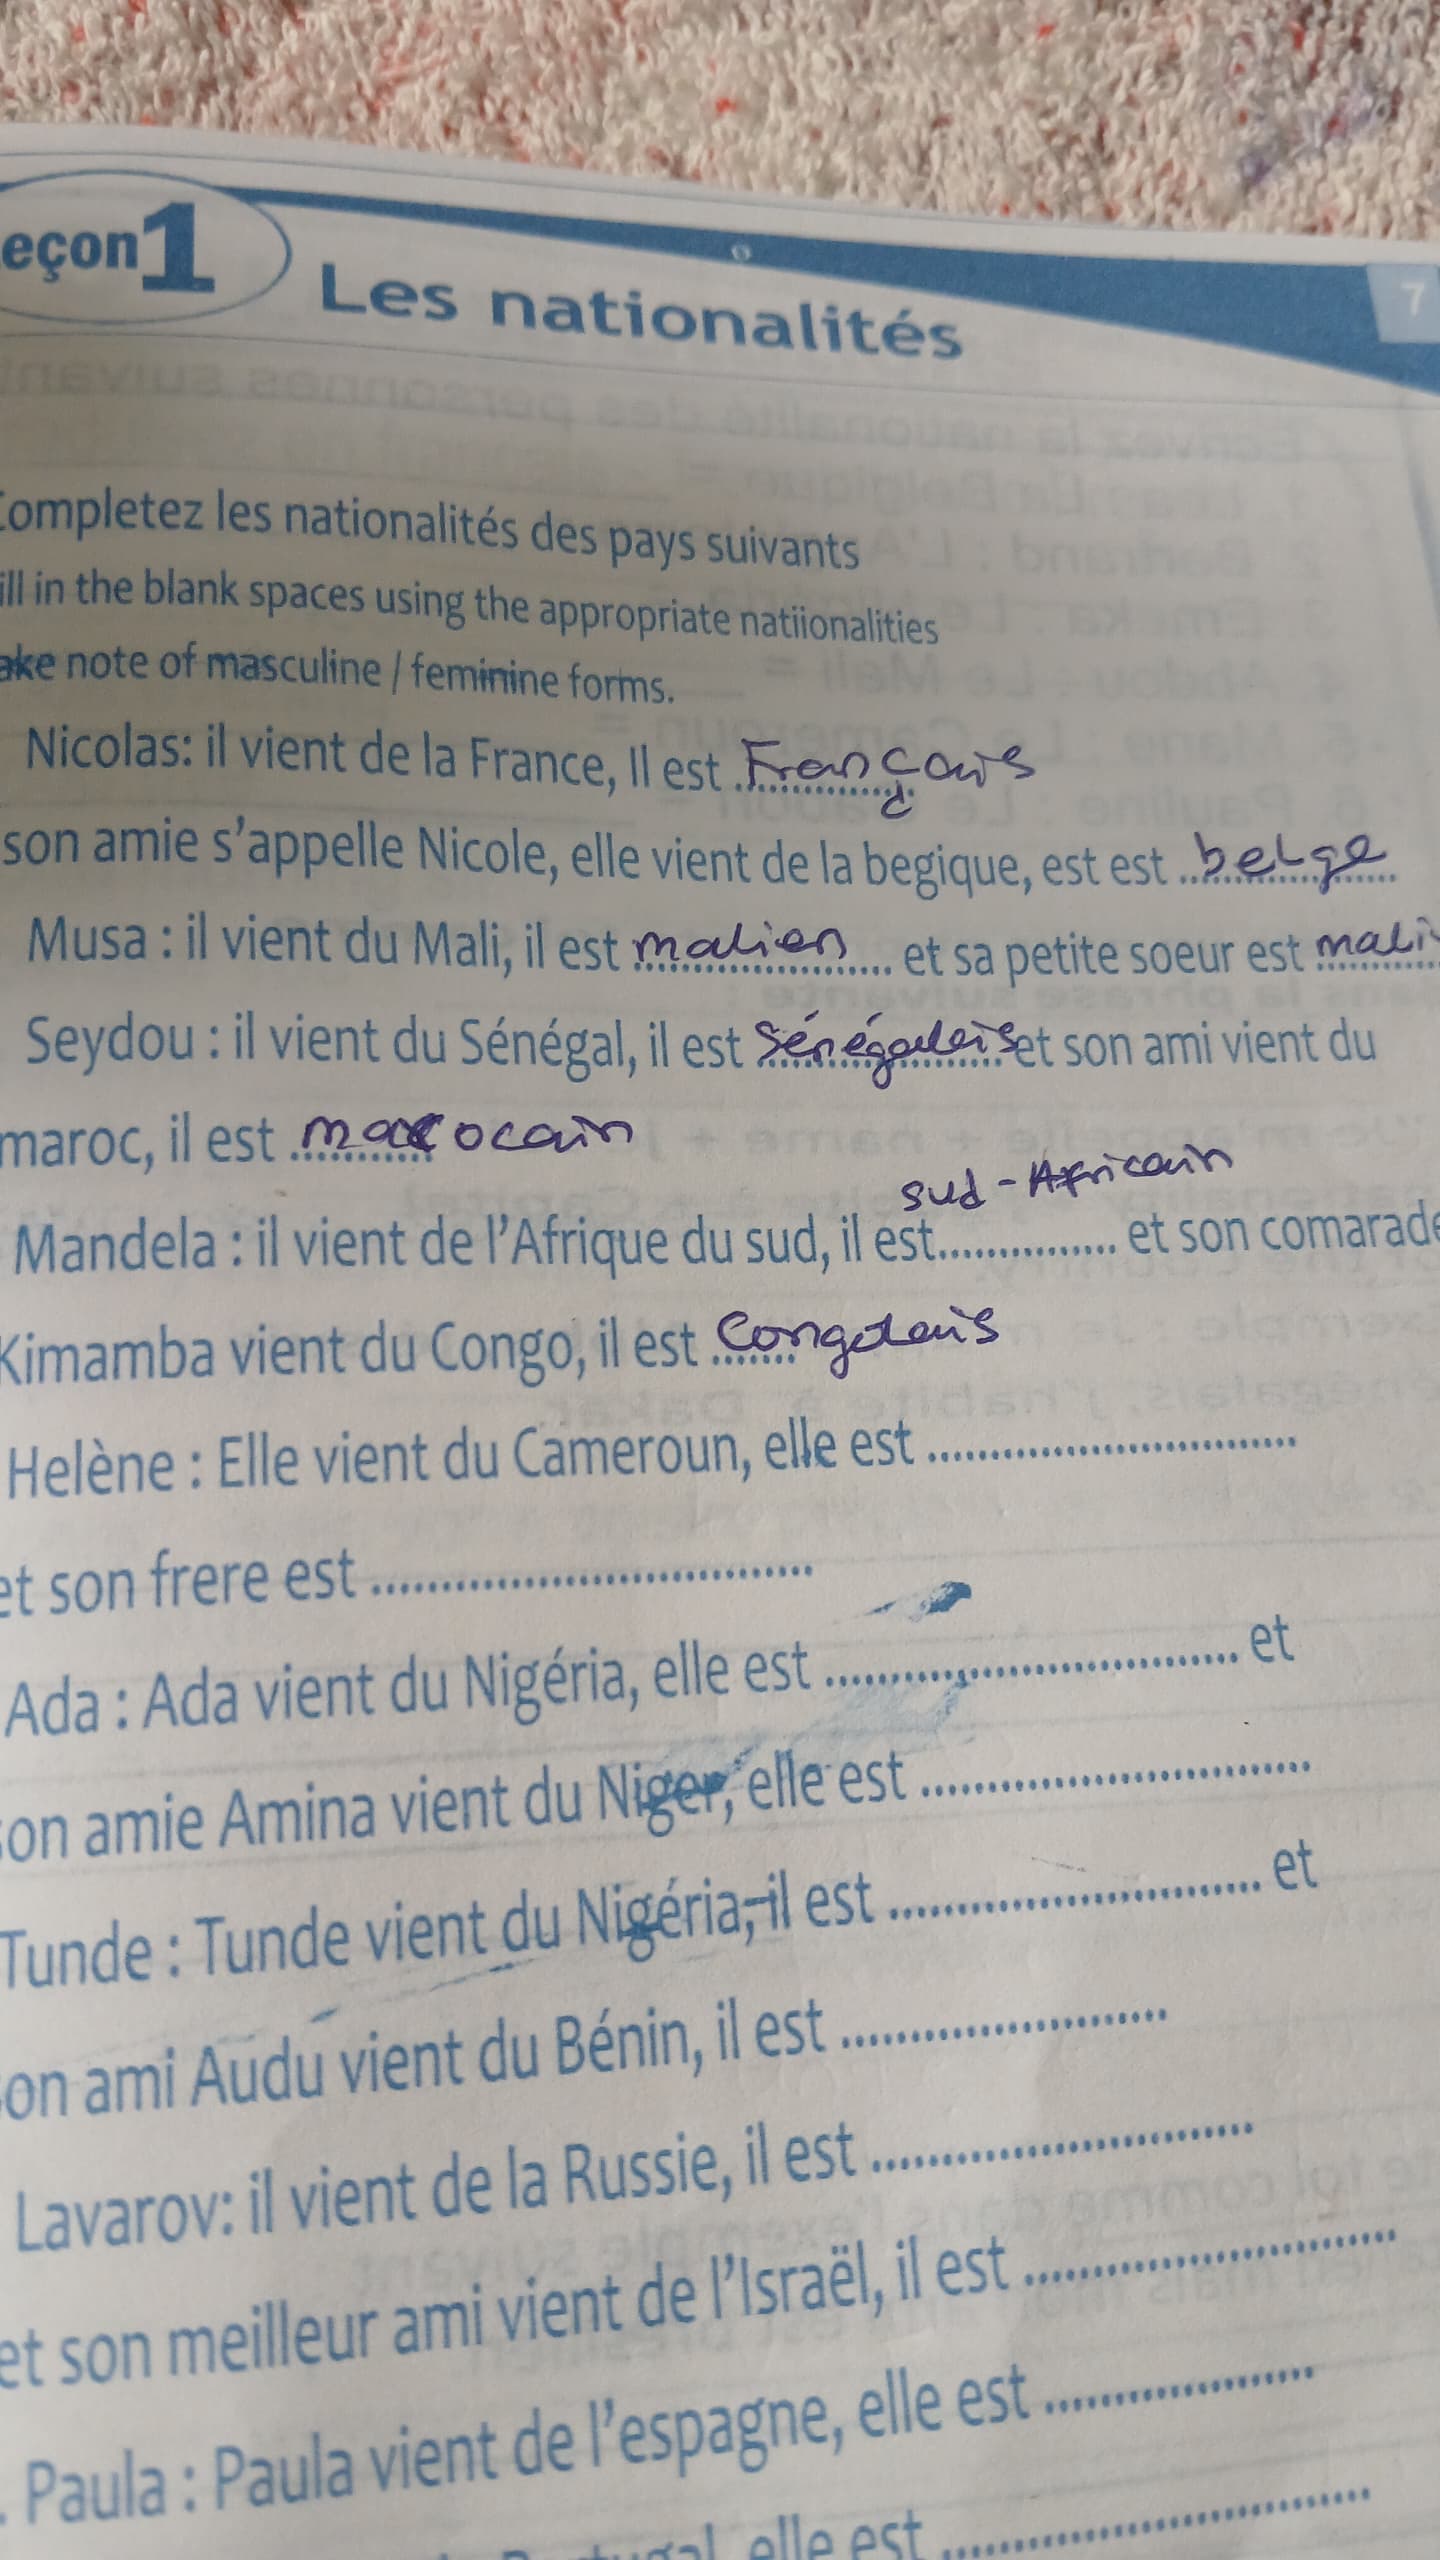 eçon 1
Les nationalités
7
Completez les nationalités des pays suivants
ill in the blank spaces using the appropriate natiionalities
ake note of masculine / feminine forms.
Nicolas: il vient de la France, Il est Français
son amie s'appelle Nicole, elle vient de la begique, est est belge
Musa : il vient du Mali, il est malien et sa petite soeur est mali
Seydou : il vient du Sénégal, il est Sénégalais et son ami vient du
maroc, il est marocain
sud-Africain
Mandela : il vient de l'Afrique du sud, il est............... et son comarade
Kimamba vient du Congo, il est Congolais
Helène : Elle vient du Cameroun, elle est ................................
et son frere est .......................................
Ada : Ada vient du Nigéria, elle est ..................................... et
son amie Amina vient du Niger, elle est ...................................
Tunde : Tunde vient du Nigéria, il est ................................. et
son ami Audu vient du Bénin, il est .............................
Lavarov: il vient de la Russie, il est ..................................
et son meilleur ami vient de l'Israël, il est .................................
. Paula : Paula vient de l'espagne, elle est ........................
Portugal, elle est ......................................